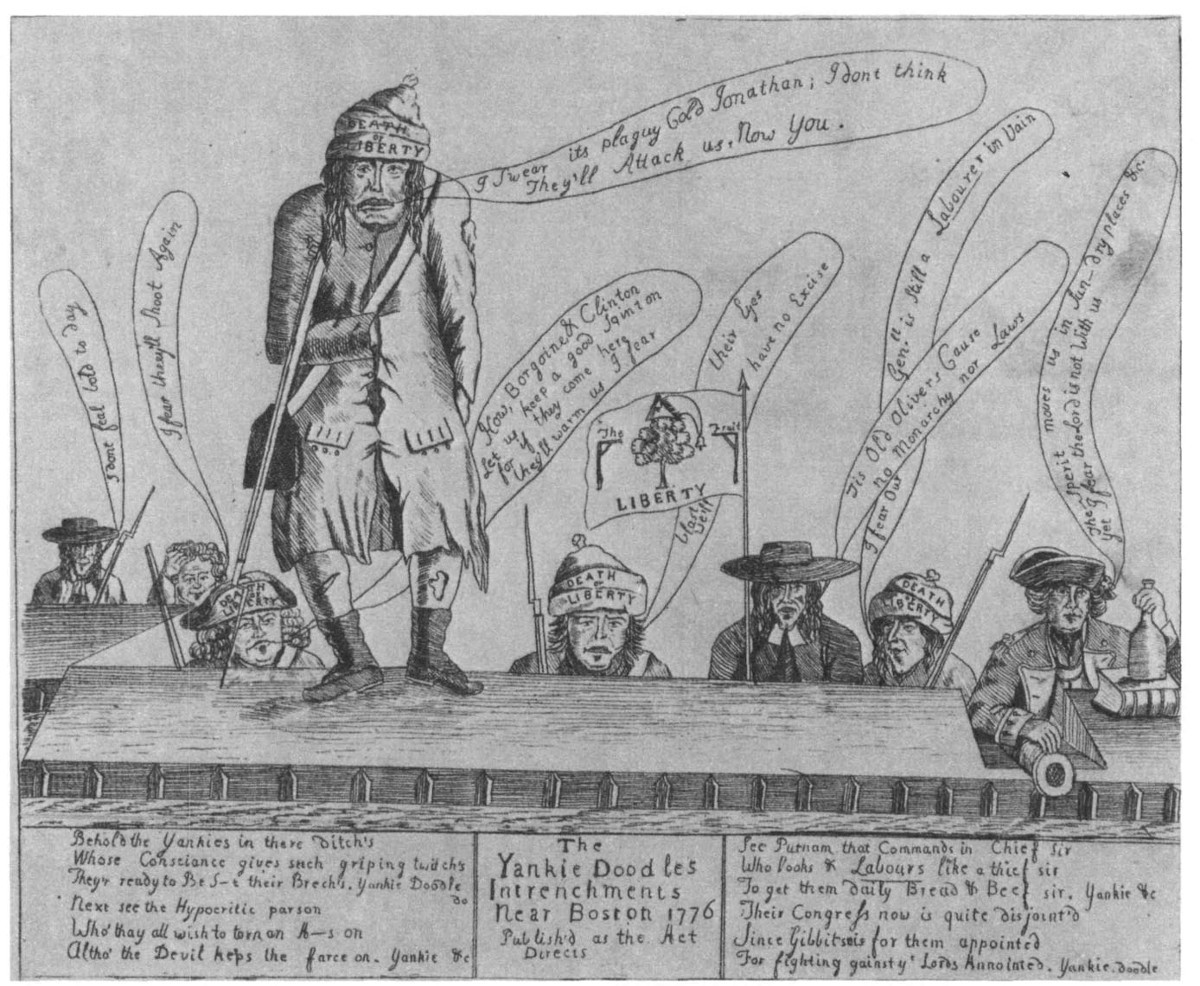 I Swear its plaguy Cold Jonathan; I dont think
They'll Attack us, Now You.
I dont feal bold to day
I fear they'll Shoot Again
DEATH
or
LIBERTY
How, Borgoine & Clinton
Let us keep a good Squint on
for if they come here
they'll warm us I fear
their Eyes
have no Excise
Gen.ll is Still a Labourer in Vain
Tis Old Olivers Cause
no Monarchy nor Laws
I fear Our
The Sperit moves us in Sun-dry places &c.
yet I fear the Lord is not With us
The Fruit
LIBERTY
DEATH
LIBERTY
DEATH
or
LIBERTY
DEATH
or
LIBERTY
Behold the Yankies in there Ditch's
Whose Consciance gives such griping twitch's
They'r ready to Be S–t their Brech's. Yankie Doodle
do
Next see the Hypocritic parson
Who' thay all wish to torn an A–s on
Altho' the Devil keps the farce on. Yankie &c
The
Yankie Doodles
Intrenchments
Near Boston 1776
Publish'd as the Act
Directs
See Putnam that Commands in Chief sir
Who looks & Labours like a thief sir
To get them daily Bread & Beef sir. Yankie &c
Their Congress now is quite disjoint'd
Since Gibbits is for them appointed
For fighting gainst y' Lords Annointed. Yankie. doodle